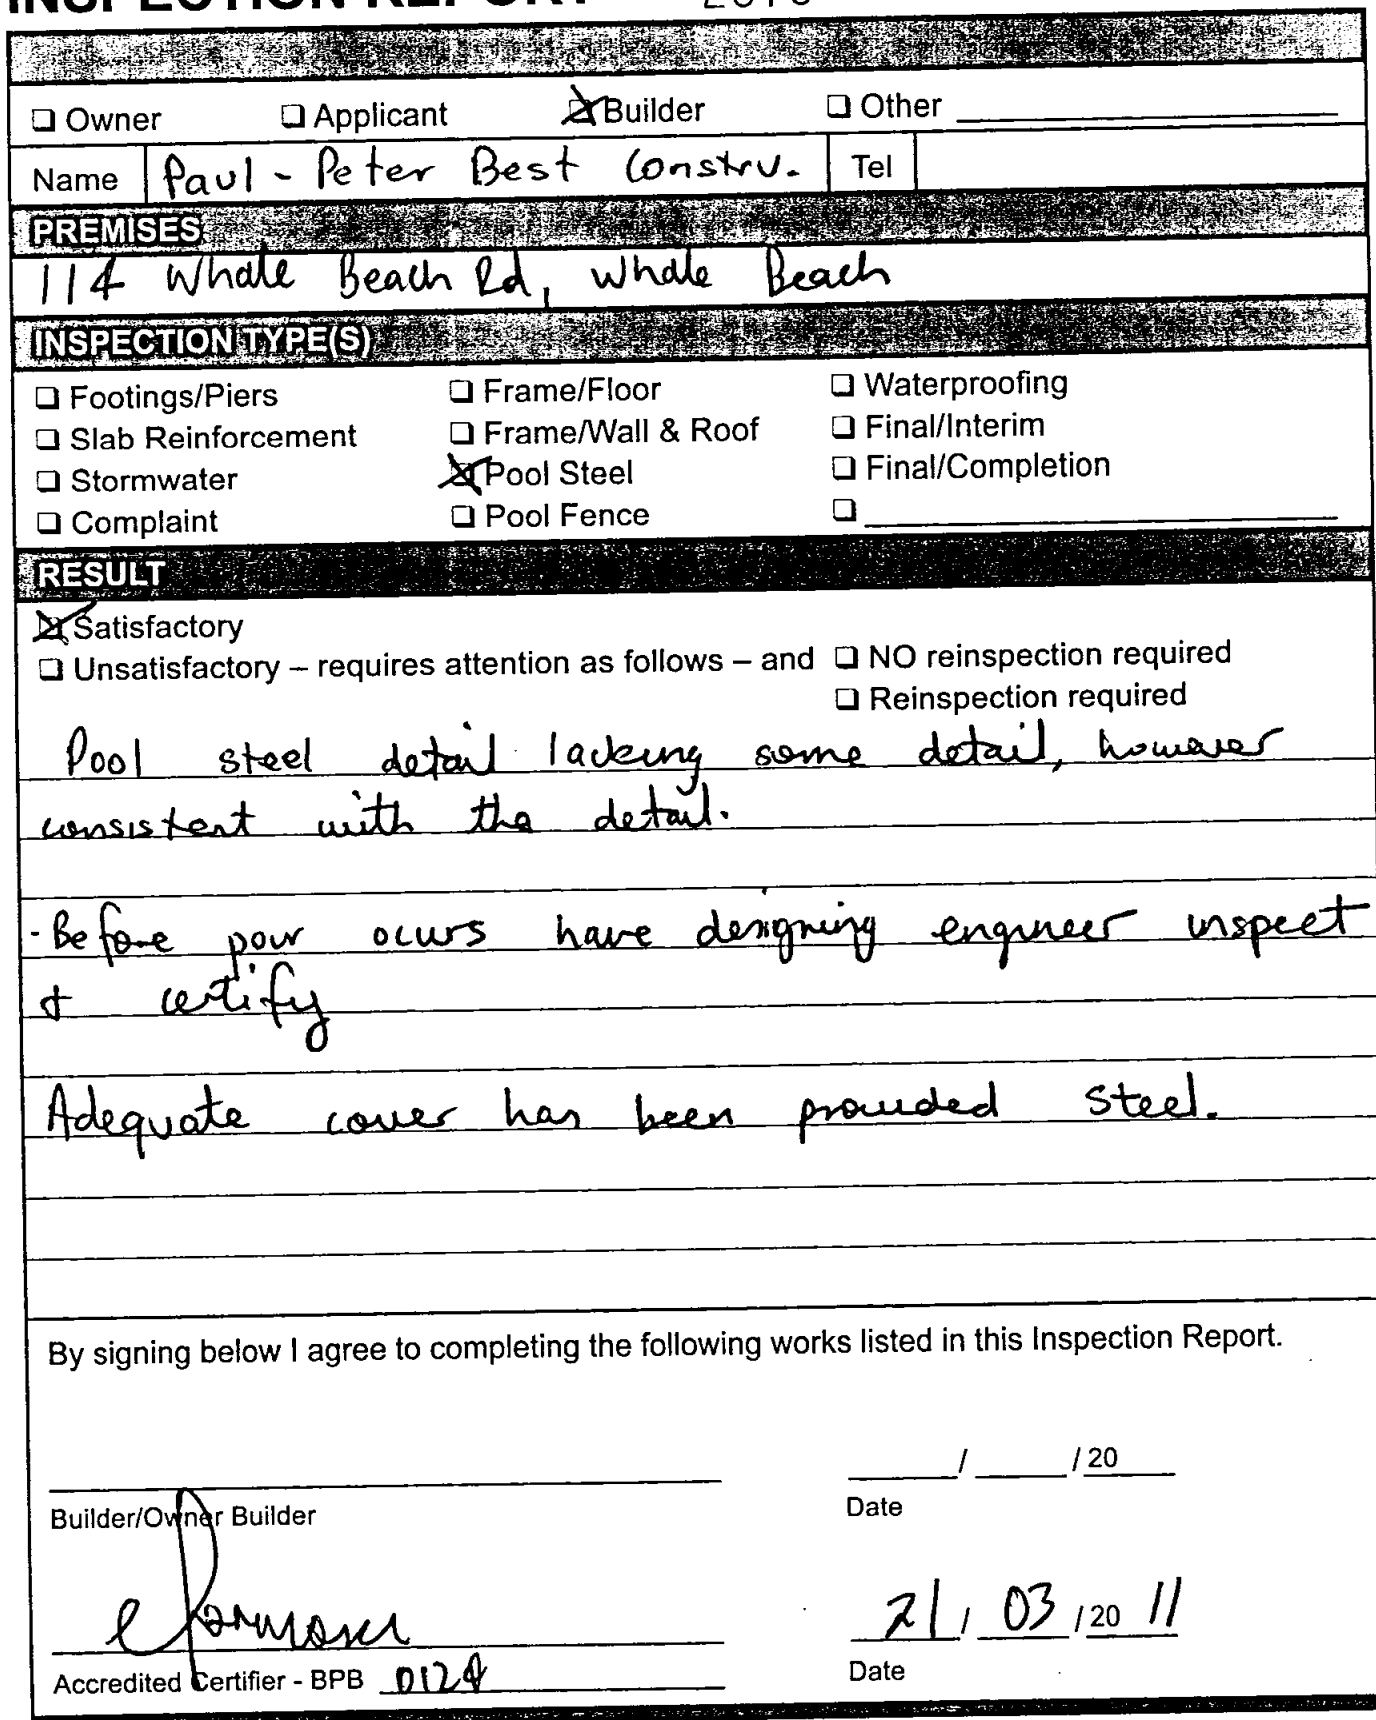 INSPECTION REPORT
☐ Owner ☐ Applicant ☒ Builder ☐ Other
Name Paul - Peter Best Constru. Tel
PREMISES
114 Whale Beach Rd, Whale Beach
INSPECTION TYPE(S)
☐ Footings/Piers ☐ Frame/Floor ☐ Waterproofing
☐ Slab Reinforcement ☐ Frame/Wall & Roof ☐ Final/Interim
☐ Stormwater ☒ Pool Steel ☐ Final/Completion
☐ Complaint ☐ Pool Fence ☐
RESULT
☒ Satisfactory
☐ Unsatisfactory – requires attention as follows – and ☐ NO reinspection required
☐ Reinspection required
Pool steel detail lacking some detail, however
consistent with the detail.
- Before pour occurs have designing engineer inspect
& certify
Adequate cover has been provided steel.
By signing below I agree to completing the following works listed in this Inspection Report.
/ / 20
Builder/Owner Builder Date
21 / 03 / 20 11
Accredited Certifier - BPB 0124 Date